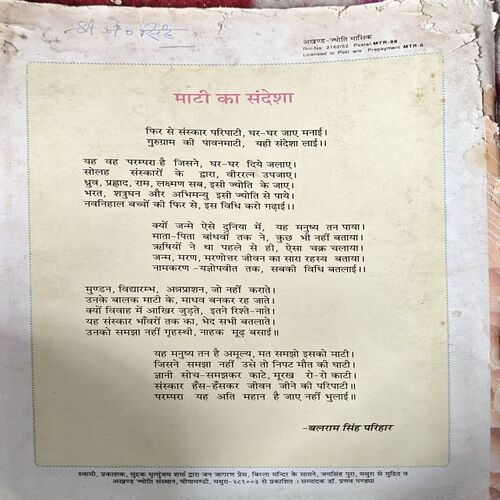 अखण्ड-ज्योति मासिक
Reg.No 2162/52 Postal-MTR-98
Licensed to Post w/o Prepayment MTR-8
माटी का संदेशा
फिर से संस्कार परिपाटी, घर-घर जाए मनाई।
गुरुग्राम की पावनमाटी, यही संदेशा लाई।।
यह वह परम्परा है जिसने, घर-घर दिये जलाए।
सोलह संस्कारों के द्वारा, वीररत्न उपजाए।
ध्रुव, प्रह्लाद, राम, लक्ष्मण सब, इसी ज्योति के जाए।
भरत, शत्रुघन और अभिमन्यु इसी ज्योति से पाये।
नवनिहाल बच्चों की फिर से, इस विधि करो गढ़ाई।।
क्यों जन्मे ऐसे दुनिया में, यह मनुष्य तन पाया।
माता-पिता बांधवों तक ने, कुछ भी नहीं बताया।
ऋषियों ने था पहले से ही, ऐसा चक्र चलाया।
जन्म, मरण, मरणोत्तर जीवन का सारा रहस्य बताया।
नामकरण -यज्ञोपवीत तक, सबकी विधि बतलाई।।
मुण्डन, विद्यारम्भ, अन्नप्राशन, जो नहीं कराते।
उनके बालक माटी के, माधव बनकर रह जाते।
क्यों विवाह में आखिर जुड़ते, इतने रिश्ते-नाते।
यह संस्कार भाँवरों तक का, भेद सभी बतलाते।
उनको समझा नहीं गृहस्थी, नाहक मूढ़ बसाई॥
यह मनुष्य तन है अमूल्य, मत समझो इसको माटी।
जिसने समझा नहीं उसे तो निपट मौत की घाटी।
ज्ञानी सोच-समझकर काटे, मूरख रो-रो काटी।
संस्कार हँस-हँसकर जीवन जीने की परिपाटी॥
परम्परा यह अति महान है जाए नहीं भुलाई॥
-बलराम सिंह परिहार
स्वामी, प्रकाशक, मुद्रक मृत्युंजय शर्मा द्वारा जन जागरण प्रेस, बिरला मन्दिर के सामने, जयसिंह पुरा, मथुरा से मुद्रित व
अखण्ड ज्योति संस्थान, घीयामण्डी, मथुरा-२८१००३ से प्रकाशित। सम्पादक डॉ. प्रणव पण्ड्या